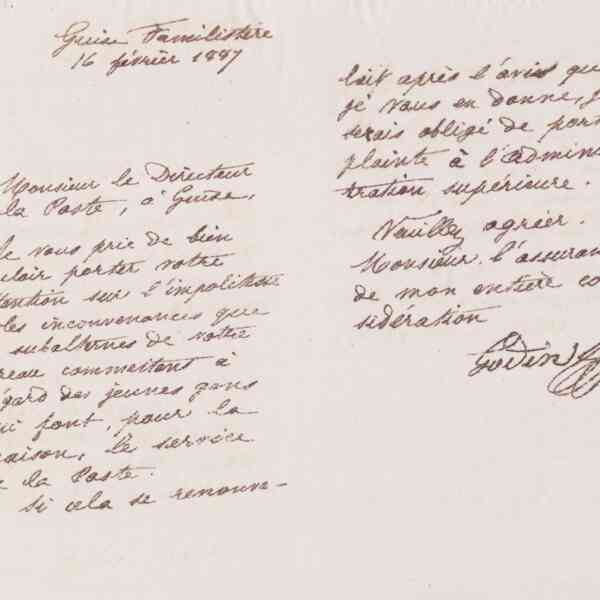 Guise Familistère
16 février 1887
Monsieur le Directeur
la Poste, à Guise,
Je vous prie de bien
uloir porter votre
tention sur l'impolitesse
les inconvenances que
subalternes de votre
reau commettent à
égard des jeunes gens
ui font, pour la
aison, le service
e la Poste.
Si cela se renouve-
lait après l'avis que
je vous en donne, j
serais obligé de port
plainte à l'admins
tration supérieure.
Veuillez agréer.
Monsieur, l'assuran
de mon entière co
sidération
Godin